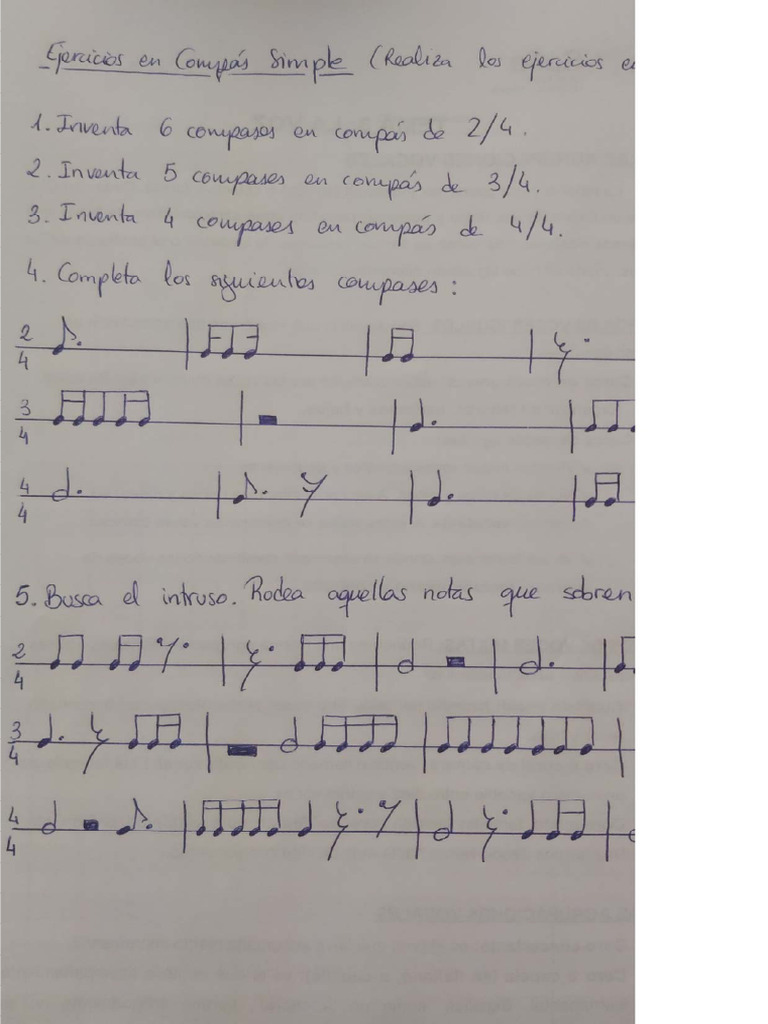 Ejercicios en Compás Simple (Realiza los ejercicios en
1. Inventa 6 compases en compás de 2/4.
2. Inventa 5 compases en compás de 3/4.
3. Inventa 4 compases en compás de 4/4.
4. Completa los siguientes compases:
2
4
3
4
4
4
5. Busca el intruso. Rodea aquellas notas que sobren
2
4
3
4
4
4